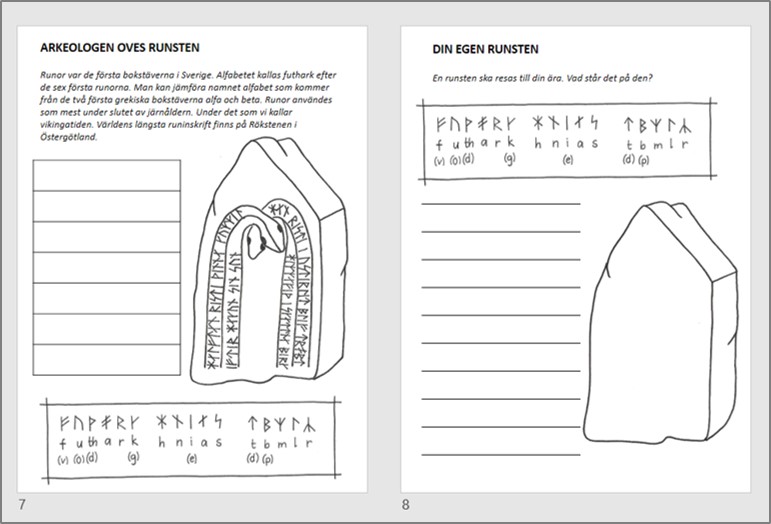 ARKEOLOGEN OVES RUNSTEN
Runor var de första bokstäverna i Sverige. Alfabetet kallas futhark efter
de sex första runorna. Man kan jämföra namnet alfabet som kommer
från de två första grekiska bokstäverna alfa och beta. Runor användes
som mest under slutet av järnåldern. Under det som vi kallar
vikingatiden. Världens längsta runinskrift finns på Rökstenen i
Östergötland.
ᚠ ᚢ ᚦ ᚬ ᚱ ᚴ ᚼ ᚾ ᛁ ᛅ ᛋ ᛏ ᛒ ᛘ ᛚ ᛦ
f u th a r k h n i a s t b m l r
(v) (o) (d) (g) (e) (d) (p)
7
DIN EGEN RUNSTEN
En runsten ska resas till din ära. Vad står det på den?
ᚠ ᚢ ᚦ ᚬ ᚱ ᚴ ᚼ ᚾ ᛁ ᛅ ᛋ ᛏ ᛒ ᛘ ᛚ ᛦ
f u th a r k h n i a s t b m l r
(v) (o) (d) (g) (e) (d) (p)
8